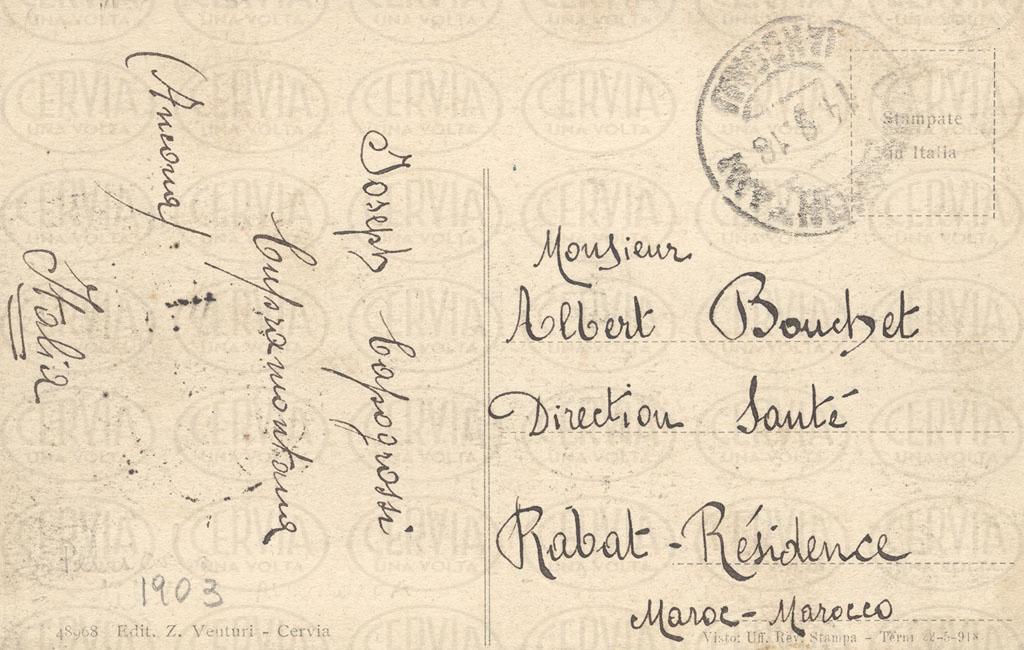 Joseph Capogrossi
Cupramontana
(Ancona)
Italia
1903
48968 Edit. Z. Venturi - Cervia
14 9 18
Stampate
in Italia
Monsieur
Albert Bouchet
Direction Santé
Rabat - Résidence
Maroc - Marocco
Visto: Uff. Rev. Stampa - Terni 22-5-918
CERVIA
UNA VOLTA